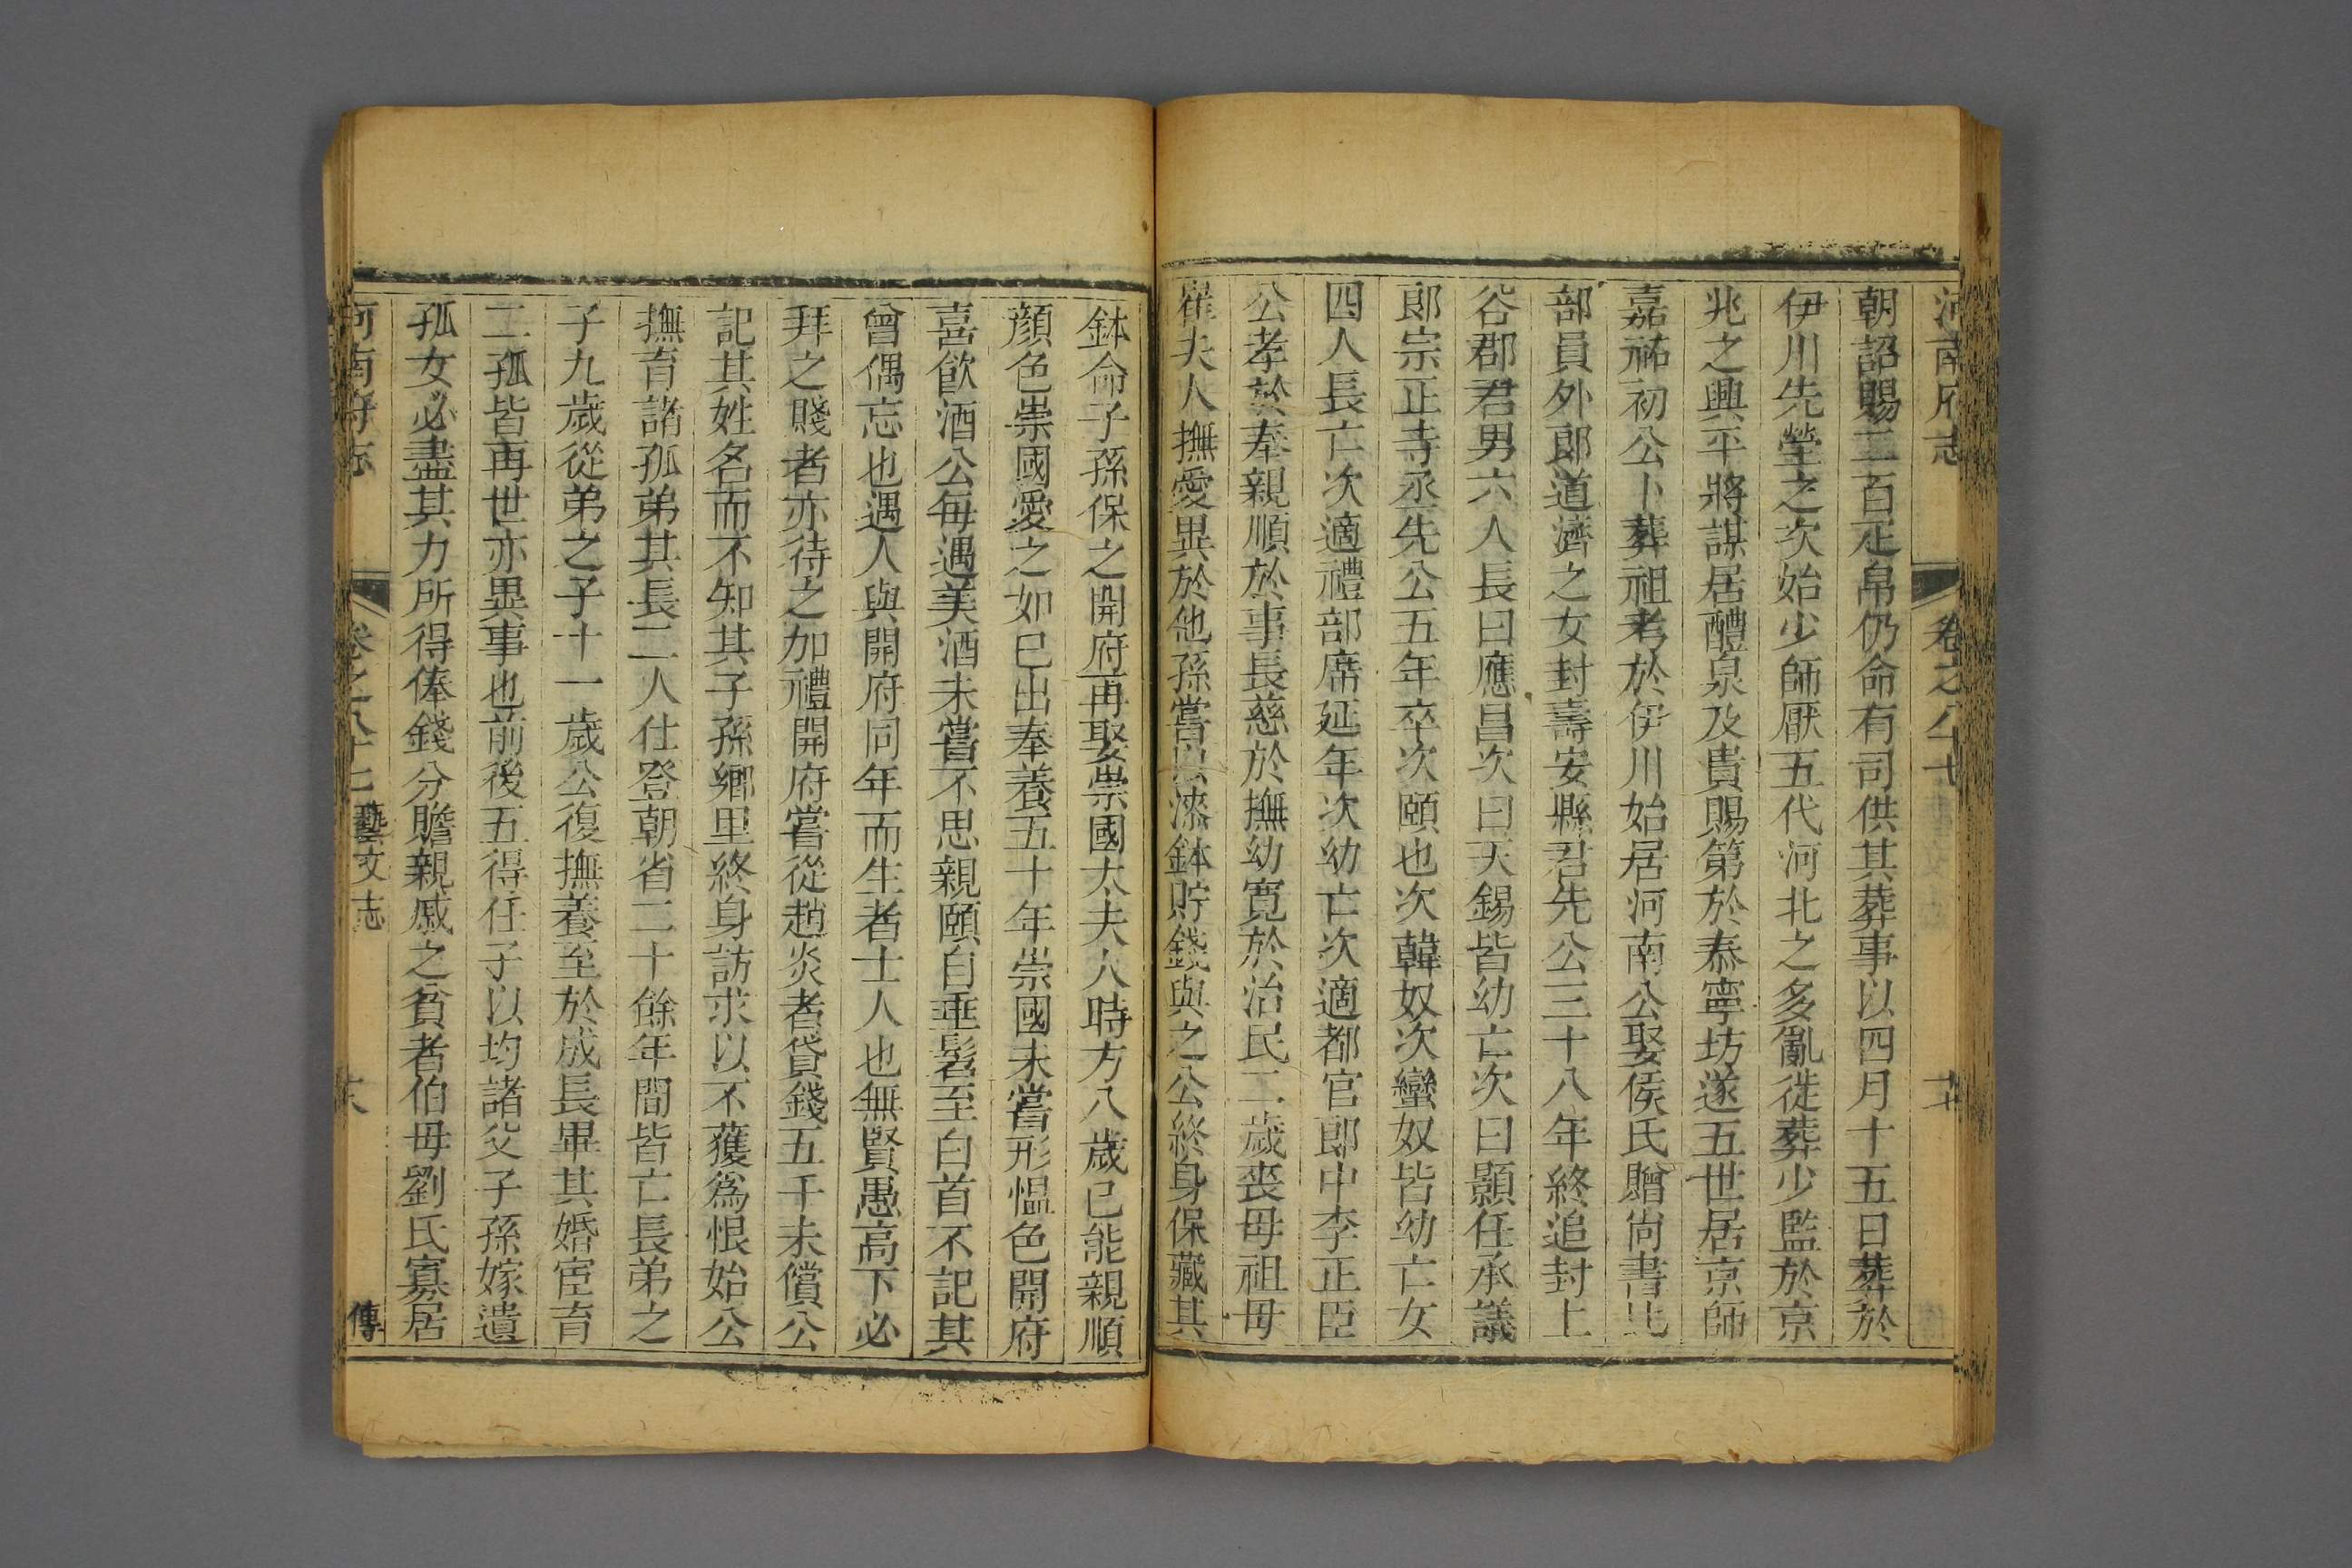 河南府志 卷之八十
朝詔賜二百疋帛仍命有司供其葬事以四月十五日葬於
伊川先塋之次始少師厭五代河北之多亂徙葬少監於京
兆之興平將謀居醴泉及貴賜第於泰寧坊遂五世居京師
嘉祐初公卜葬祖考於伊川始居河南公娶侯氏贈尚書比
部員外郎道濟之女封壽安縣君先公三十八年終追封上
谷郡君男六人長曰應昌次曰天錫皆幼亡次曰顥任承議
郎宗正寺丞先公五年卒次頤也次韓奴次蠻奴皆幼亡女
四人長亡次適禮部席延年次幼亡次適都官郎中李正臣
公孝於奉親順於事長慈於撫幼寬於治民二歲喪母祖母
崔夫人撫愛異於他孫嘗以漆鉢貯錢與之公終身保藏其
鉢命子孫保之開府再娶崇國太夫人時方八歲已能親順
顏色崇國愛之如已出奉養五十年崇國未嘗形慍色開府
喜飲酒公每遇美酒未嘗不思親頤自垂髫至白首不記其
曾偶忘也遇人與開府同年而生者士人也無賢愚高下必
拜之賤者亦待之加禮開府嘗從趙炎者貸錢五千未償公
記其姓名而不知其子孫鄉里終身訪求以不獲爲恨始公
撫育諸孤弟其長二人仕登朝省二十餘年間皆亡長弟之
子九歲從弟之子十一歲公復撫養至於成長畢其婚宦育
二孤皆再世亦異事也前後五得任子以均諸父子孫嫁遺
孤女必盡其力所得俸錢分贍親戚之貧者伯母劉氏寡居
河南府志 卷之八十七 藝文志 傳